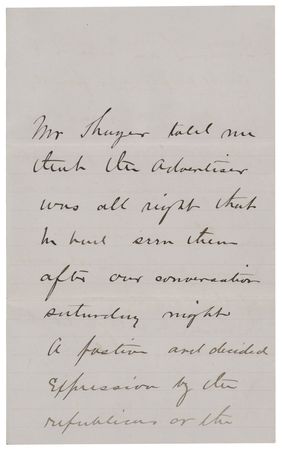 Mr Thayer told me
that the Advertiser
was all right that
he had seen them
after our conversation
saturday night
A postive and decided
Expression by the
republicans or the